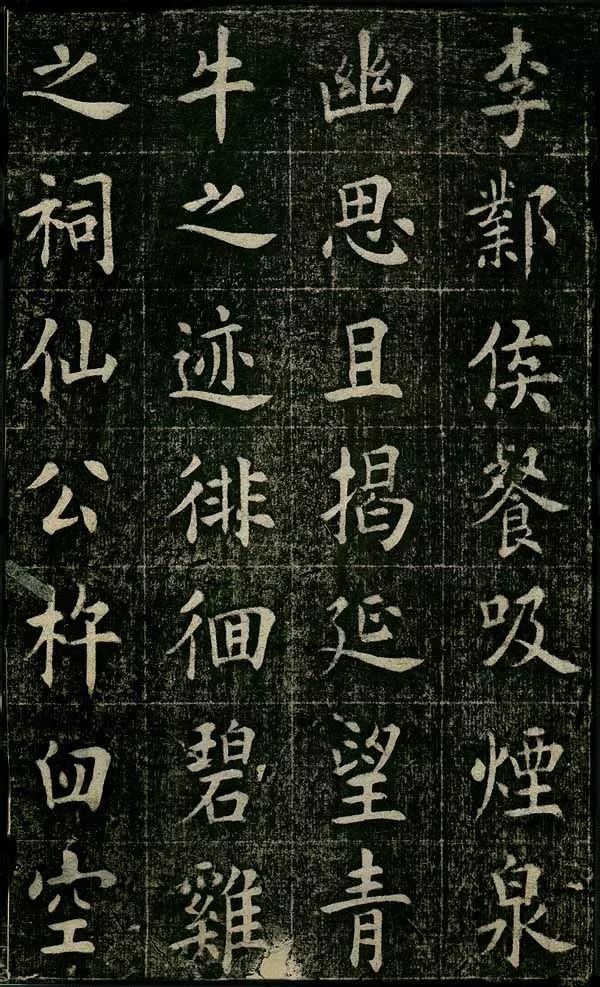 李鄴侯餐吸煙泉
幽思且揭延望青
牛之迹徘徊碧雞
之祠仙公杵臼空